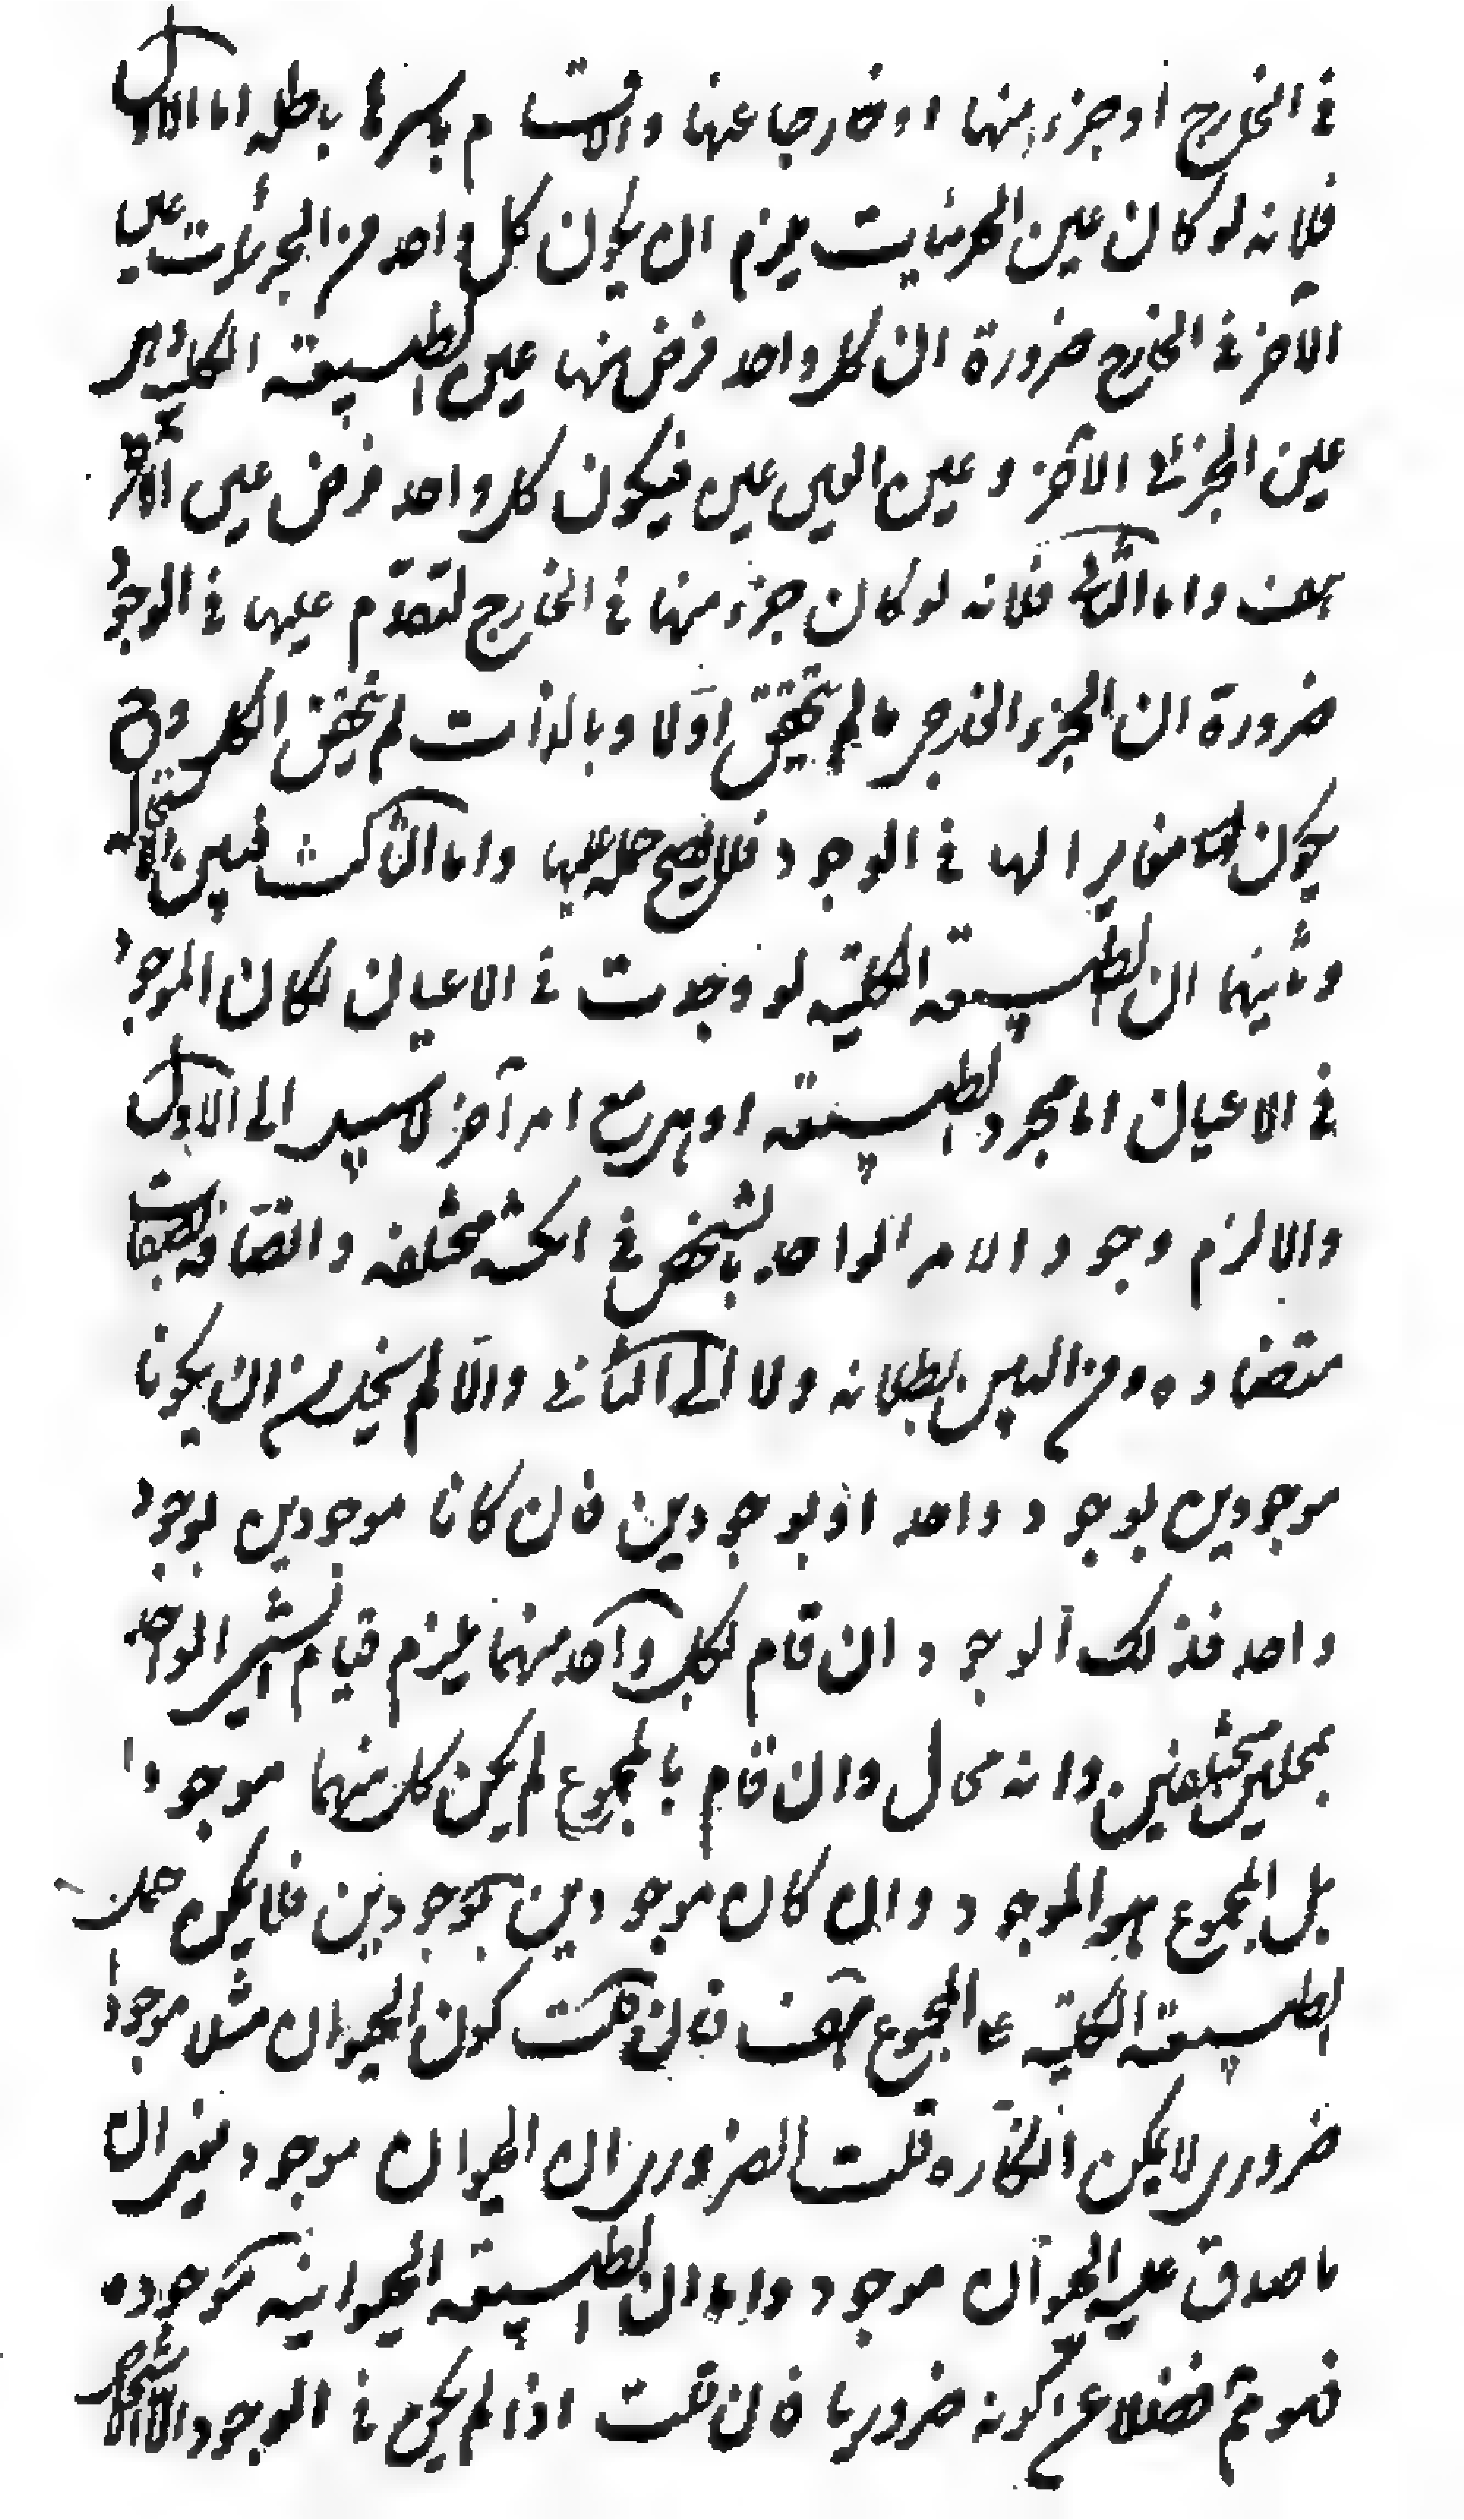 في الخارج او جزء منها او خارجا عنها والاقسام باسرها باطلة اما الاول
فلانه لو كان عين الجزئيات يلزم ان يكون كل واحد من الجزئيات عين
الآخر في الخارج ضرورة ان كل واحد فرض منها عين الطبيعة الكلية وهي
عين الجزئي الآخر وعين العين عين فيكون كل واحد فرض عين الآخر
هف واما الثاني فلانه لو كان جزء منها في الخارج لتقدم عليها في الوجود
ضرورة ان الجزء الخارجي ما لم يتحقق اولا وبالذات لم يتحقق الكل وح
يكون مغايرا لها في الوجود فلا يصح حمله عليها واما الثالث فبين الاستحالة
وثانيهما ان الطبيعة الكلية لو وجدت في الاعيان لكان الموجود
في الاعيان اما مجرد الطبيعة او هي مع امر آخر لا سبيل الى الاول
والا لزم وجود الامر الواحد بالشخص في امكنة مختلفة واتصافه بصفات
متضادة ومن البين بطلانه ولا الى الثاني والا لم يخل من ان يكونا
موجودين بوجود واحد او بوجودين فان كانا موجودين بوجود
واحد فذلك الوجود ان قام بكل واحد منهما يلزم قيام الشيء الواحد
بمحلين مختلفين وانه محال وان قام بالمجموع لم يكن كل منهما موجودا
بل المجموع هو الموجود وان كان موجودين بوجودين فلا يمكن حمل
الطبيعة الكلية على المجموع هف فان قلت كون الحيوان مثلا موجودا
ضروري لا يمكن انكاره قلت الضروري ان الحيوان موجود بمعنى ان
ما صدق عليه الحيوان موجود واما ان الطبيعة الحيوانية موجودة
فممنوع فضلا عن كونه ضروريا فان قلت اذا لم يكن في الوجود الا الاشخاص